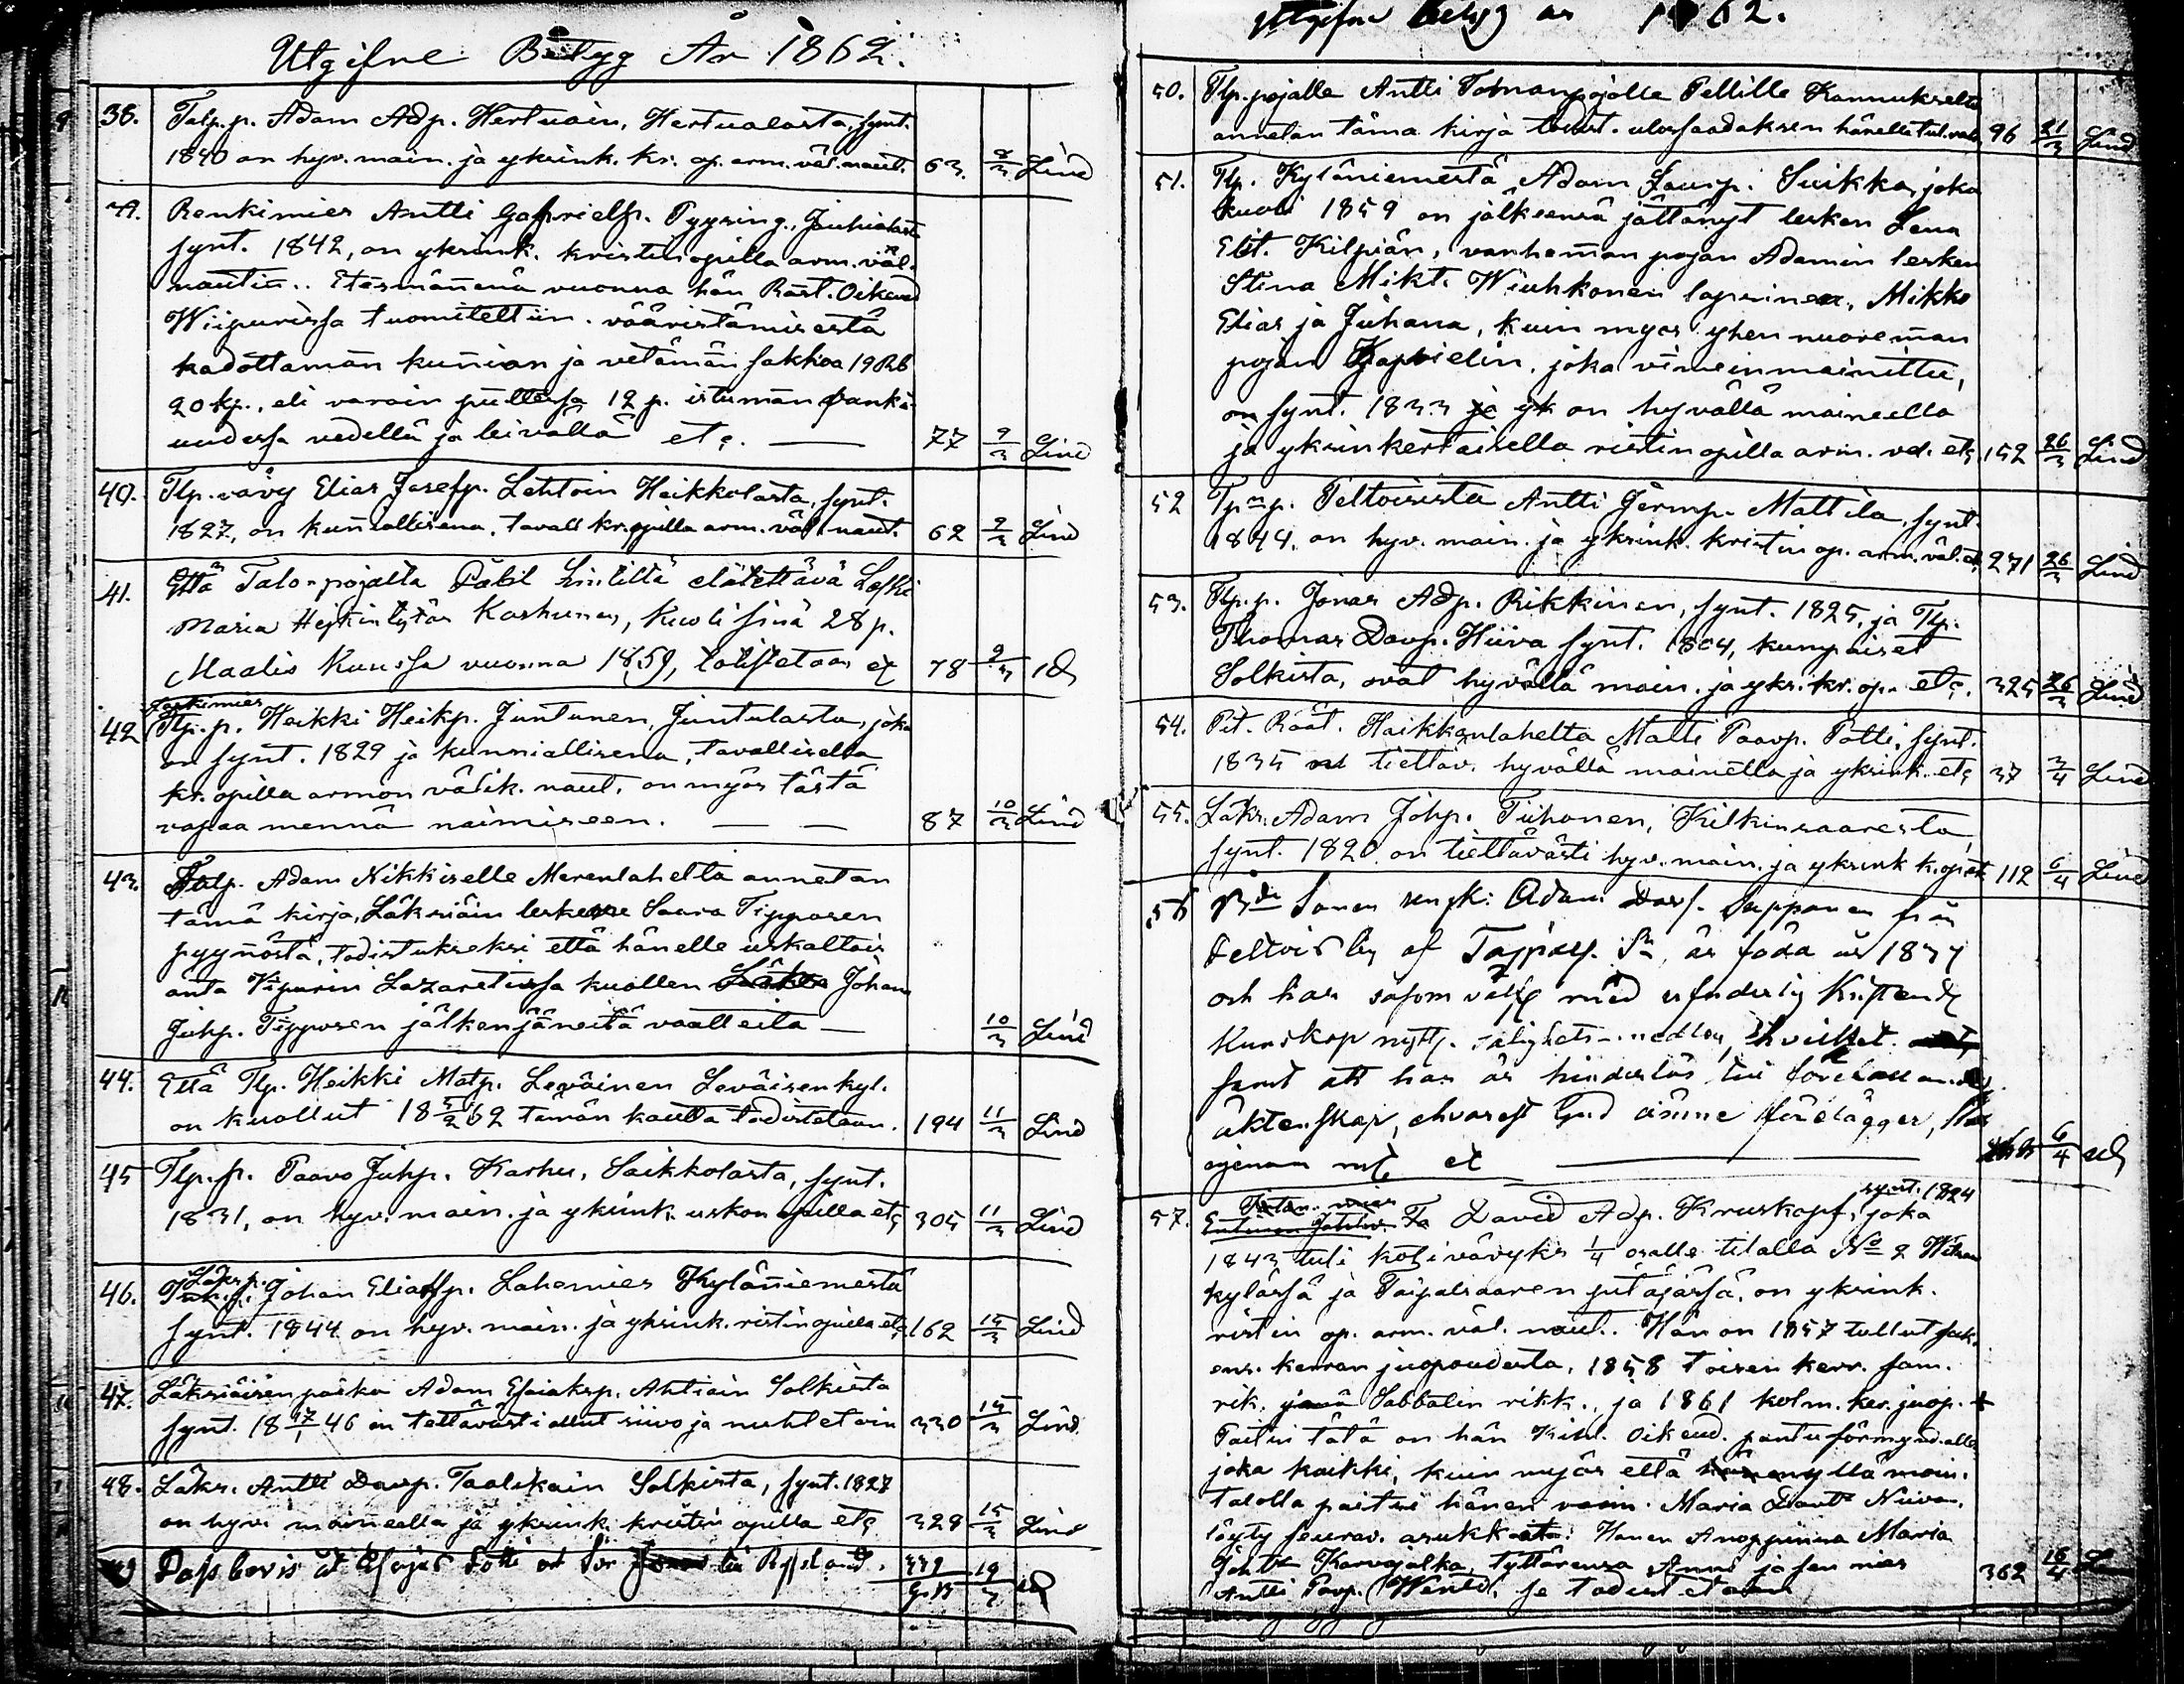 Utgifne Betyg År 1862.
38. Talp. p. Adam Adp. Hertuain, Hertualasta, synt.
1840 on hyv. main. ja yksink. kr. op. arm. väl. naut. 63. Lind
Renkimies Antti Gabrielsp. Pyysing., Jauhialasta
synt. 1842, on yksink. kristin opilla arm. väl.
nautin.. Etesmänenä vuonna hän Räst. Oikeud
Wiipurissa tuomiteltiin vääristämisestä
kadottaman kunian ja vetämän sakkoa 19 Rub
20 kp., eli varain puuttessa 12 p. istuman vanki-
uudessa vedellä ja leivällä etc. 77 9/3 Lind
40. Tlp. vävy Elias Josefp. Lehtoin Heikkolasta, synt.
1827, on kuniallisena, tavall kr. opilla arm. väl. naut. 62 9/3 Lind
41. Että Talo-pojalta Påhl elätettävä Leski
Maria Heikintytär Karhunen, kuoli sinä 28 p.
Maalis Kuussa vuonna 1859, todistetaan 78 9/3
42 Tlp. p. Heikki Heikp. Juntunen, Juntulasta, joka
on synt. 1829 ja kunniallisena, tavallisella
kr. opilla armon välik. naut. on myös tästä
vapaa mennä naimiseen. 87 10/3 Lind
43. Talp. Adam Nikkiselle Merenlahelta annetan
tämä kirja, Läksiäin lesken Saara Tipposen
pyynöstä, todistukseksi että hänelle uskaltais
anta Vipurin Lazaretissa kuollen Johan
Juhp. Tipposen jälkenjäneitä vaatteita 10/3 Lind
44. Että Tlp. Heikki Matp. Leväinen Leväisenkyl.
on kuollut 18 5/2 62 tämän kautta todistetaan. 194 11/3 Lind
45 Tlp. p. Paavo Juhp. Karhu, Saikkolasta, synt.
1831, on hyv. main. ja yksink. uskon opilla etc 305 11/3 Lind
46. Läks. p. Johan Eliaksp. Lahemies Kyläniemestä
synt. 1844 on hyv. main. ja yksink. ristin opilla etc 162 15/3 Lind
47. Läksiäisen poika Adam Esaiaksp. Ahtiain Solkista
synt. 18 17/1 46 on tettävästi ollut siivo ja nuhtetoin 330 15/3 Lind.
48. Läks. Antti Davp. Taalikain Solkista, synt. 1827
on hyv. maineella ja yksink. kristin opilla etc 329 15/3 Lind
till Ryssland. 19/3
Utgifne Betyg år 1862.
50. Tlp. pojalle Antti Tomanpojalle Pellille Kannukselta
annetan tämä kirja todist. ulossaadaksen hänelle tul. 96 21/3 Lind
51. Tlp. Kyläniemestä Adam Laurp. Suikka, joka
kuoli 1859 on jälkeensä jättänyt lesken Lena
Elist. Kilpiän, vanhemman pojan Adamin lesken
Stina Mikt. Wiuhkonen lapsinen, Mikko
Elias ja Juhana, kuin myös yhen nuoremman
pojan Gaprielin, joka viimeinmainittu,
on synt. 1833 ja yk on hyvällä maineella
ja yksinkertaisella ristin opilla arm. vel. etc 152 26/3 Lind
52 Peltoisista Antti Jermp. Mattila, synt.
1844, on hyv. main. ja yksink. kristin op. arm. väl. et, 271 26/3 Lind
53. Tlp. p. Jonas Adp. Rikkinen, synt. 1825, ja Tlp.
Thomas Davp. Hiiva synt. 1804, kumpaiset
Solkista, ovat hyvällä main. ja yks. kr. op. etc. 325 26/3 Lind
54. Pit. Räät. Haikkanlahelta Matti Paavp. Potti, synt.
1835 on tiettäv. hyvällä mainella ja yksink. etc 37 3/4 Lind
55. Läks. Adam Johp. Tiihonen, Kilkinsaaresta,
synt. 1820 on tiettävästi hyv. main. ja yksink k. op. etc 112 6/4 Lind
56 Bde Sonen Adam Davs. Lapponen från
Peltois by af Taipals. Sn, är född år 1837
och har såsom välfr. med erforderlig Kristends
Kunskap nyttj. salighets-medlen, hvilket
samt att han är hinderslös till förehavande
äktenskap, ehvarest Gud ämne förelägger,
6/4
57. David Adp. Kruskopf, joka synt. 1824
1843 tuli kotivävyks 1/4 osalle tilalla No 2
kylässä ja Taipalsaaren pitäjässä, on yksink.
ristin op. arm. väl. naut.. Hän on 1857 tullut sak.
ens. kerran juopoudesta, 1858 toisen kerr. sam.
rik. Sabbatin rikk., ja 1861 kolm. ker. juop.
Paitsi tätä on hän Kihl. Oikeud. pantu förmynd. alle
joka kaikki, kuin myös että yllä main.
talolla paitsi hänen vaim. Maria Niiva.
löyty seurav. asukkaita: Hänen Anoppinsa Maria
Karvajalka, tyttärensä Anni ja sen mies
Antti Paap. se todistetaan 362 16/4